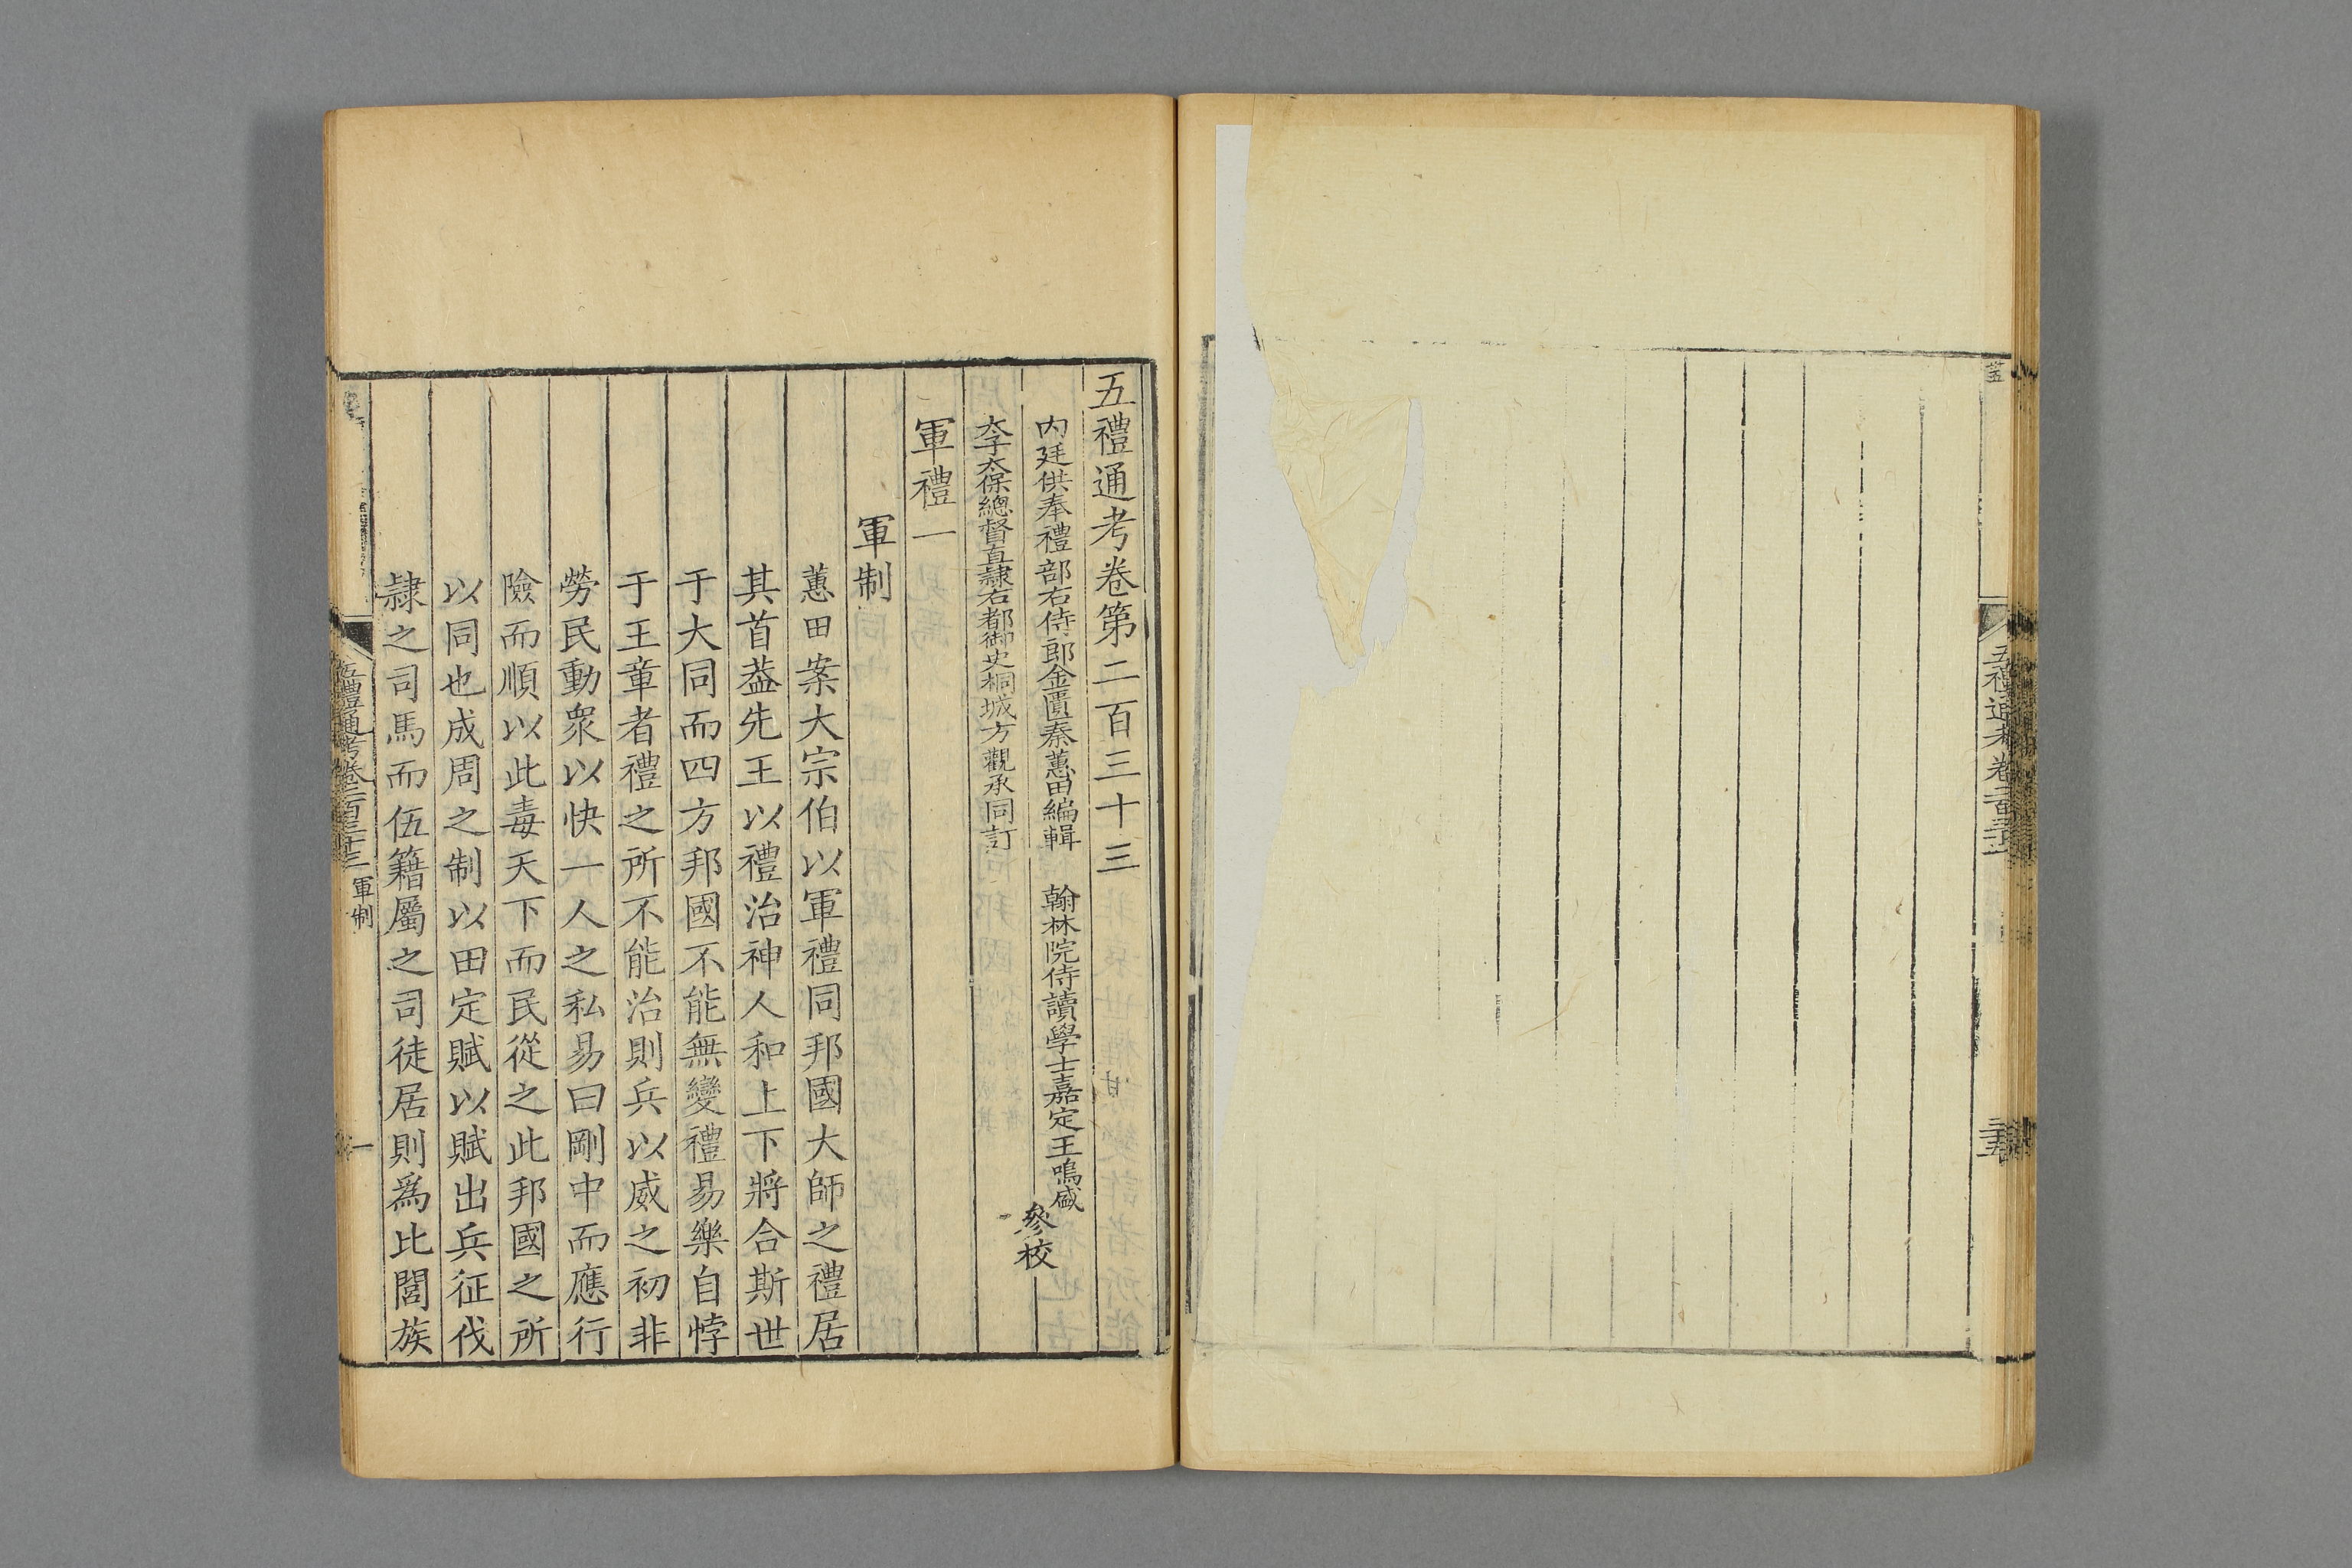 五禮通考卷第二百三十三
內廷供奉禮部右侍郎金匱秦蕙田編輯
翰林院侍讀學士嘉定王鳴盛
參校
太子太保總督直隸右都御史桐城方觀承同訂
軍禮一
軍制
蕙田案大宗伯以軍禮同邦國大師之禮居
其首葢先王以禮治神人和上下將合斯世
于大同而四方邦國不能無變禮易樂自悖
于王章者禮之所不能治則兵以威之初非
勞民動衆以快一人之私易曰剛中而應行
險而順以此毒天下而民從之此邦國之所
以同也成周之制以田定賦以賦出兵征伐
隸之司馬而伍籍屬之司徒居則爲比閭族
五禮通考卷二百三十三
軍制
一